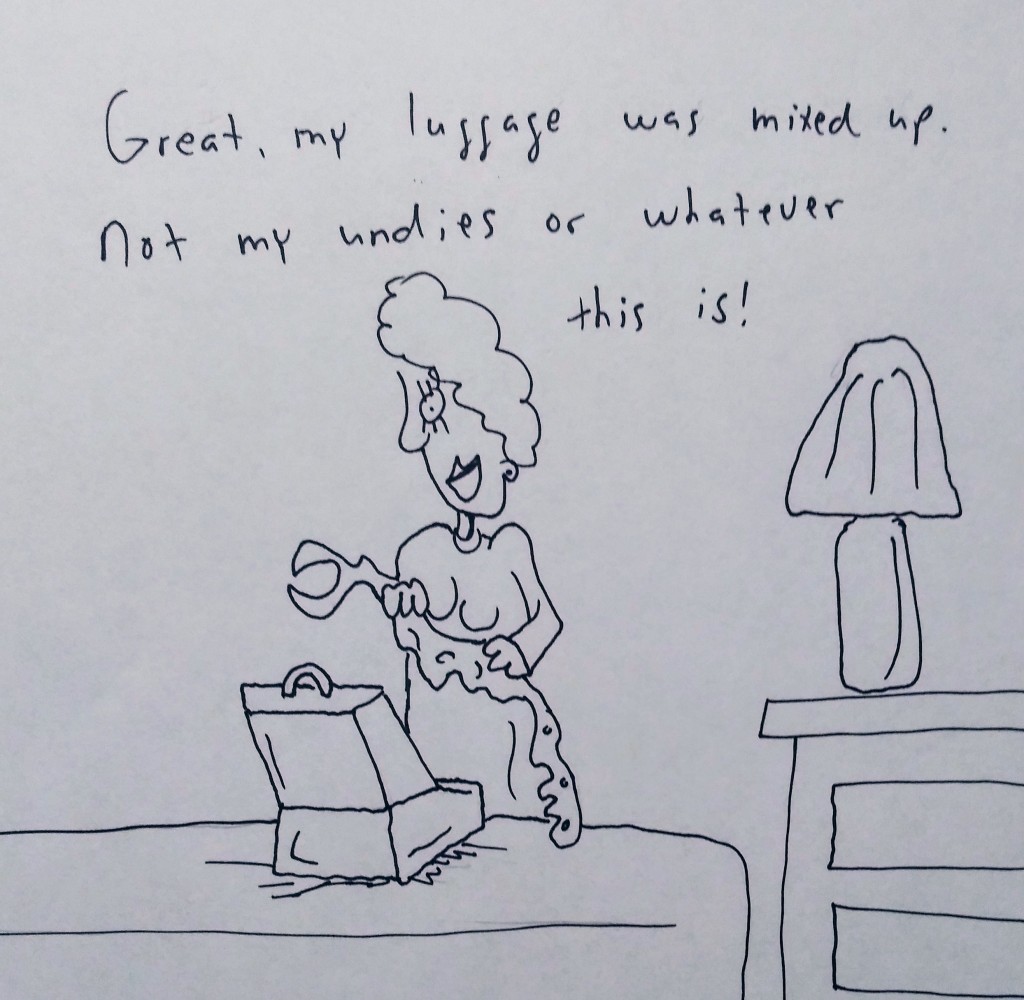 Great, my luggage was mixed up.
Not my undies or whatever
this is!